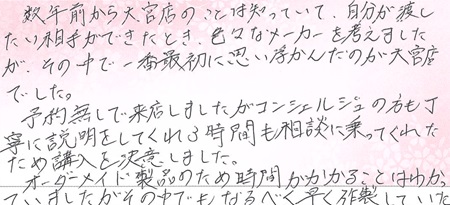 数年前から大宮店のことは知っていて、自分が渡し
たい相手ができたとき、色々なメーカーを考えました
が、その中で一番最初に思い浮かんだのが大宮店
でした。
予約無しで来店しましたがコンシェルジュの方も丁
寧に説明をしてくれ3時間も相談に乗ってくれた
ため購入を決意しました。
オーダーメイド製品のため時間がかかることはわかっ
ていましたがその中でもなるべく早く作製していた